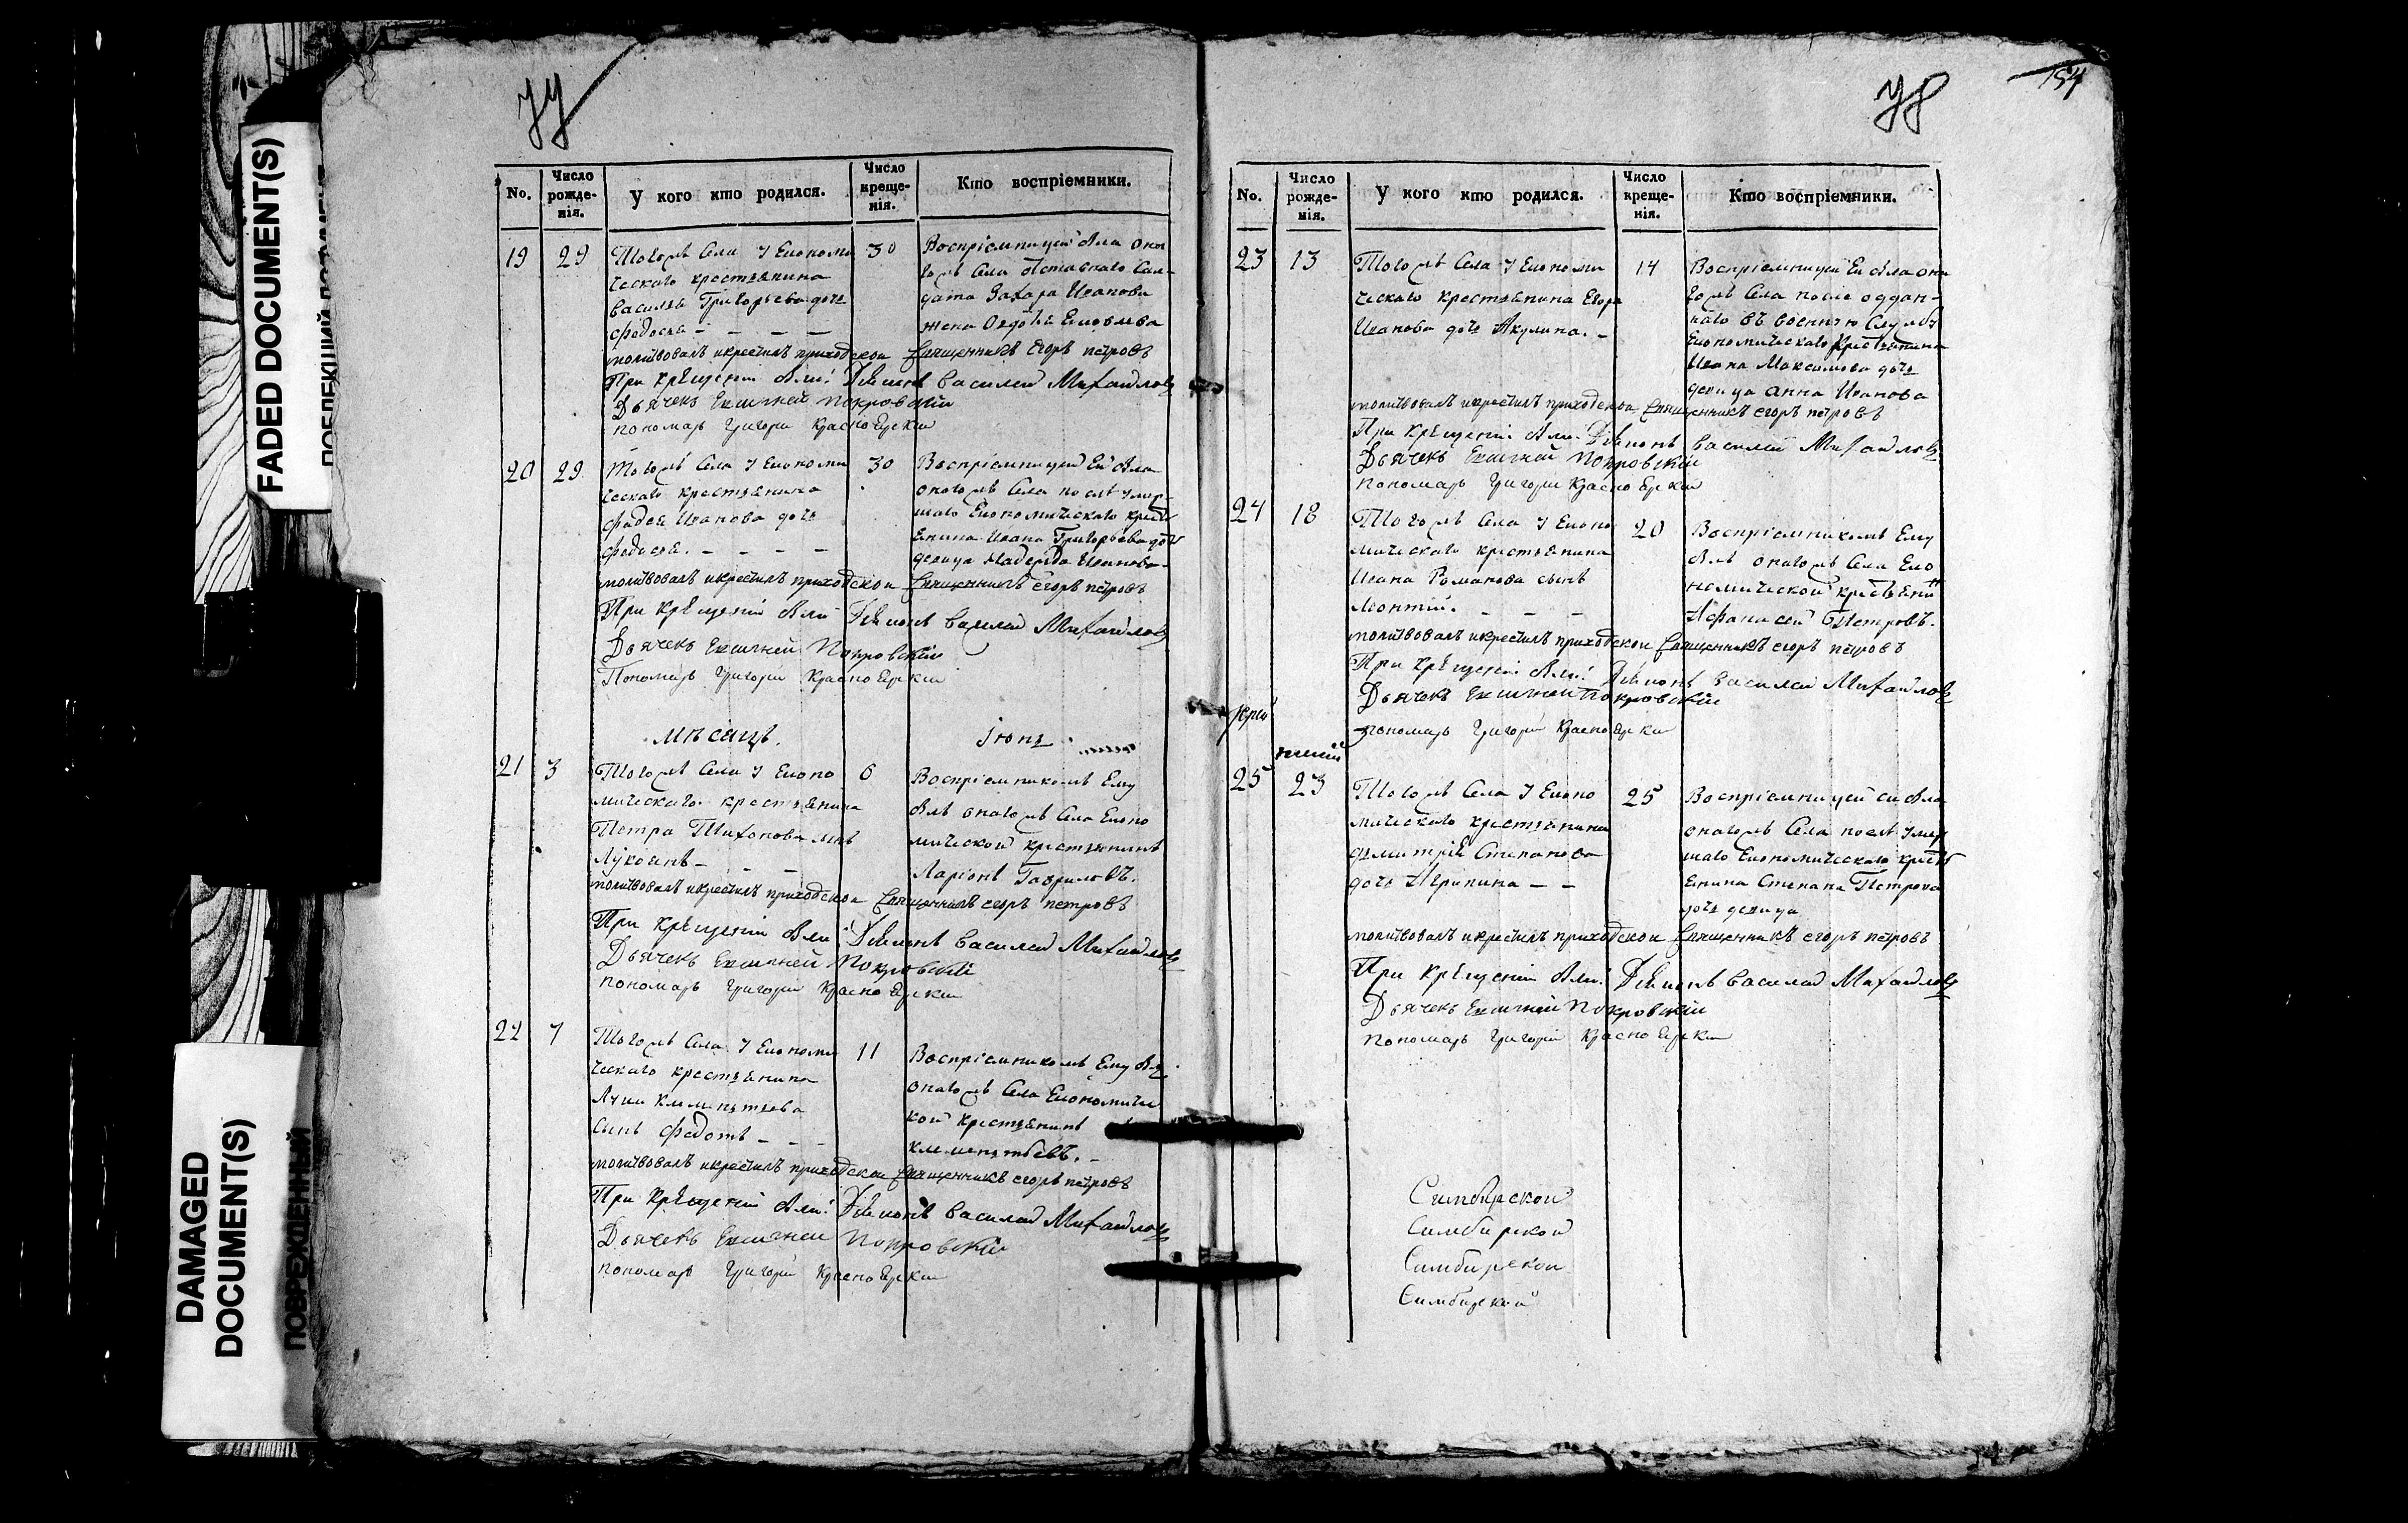 FADED DOCUMENT(S)
DAMAGED
DOCUMENT(S)
ПОВРЕЖДЕННЫЙ
77
No.
Число рожде-нія.
У кого кто родился.
Число креще-нія.
Кто воспріемники.
19 29 30
Тогожъ Села У Економи
ческаго крестьянина
василья Григорьева дочь
федосья – – – –
Воспріемницей была она
гожъ Села отставнаго Сал-
дата Захара Иванова
жена Овдотья Яковлева
молитвовалъ икрестилъ приходской священникъ егоръ петровъ
При крещеніи были: Діяконъ василей Михайловъ
Дьячекъ Евгигней Покровскій
пономарь Григорій Красно Ярскій
20 29 30
Тогожъ Села У Економи
ческаго крестьянина
фадея Иванова дочь
федосья. – – – –
Воспріемницей Ей была
оногожъ Села послѣ умер-
шаго Економическаго кресть
янина Ивана Григорьева дочь
девица Надежда Иванова
молитвовалъ икрестилъ приходской священникъ егоръ петровъ
При крещеніи были Діяконъ василей Михайловъ
Дьячекъ Евгигней Покровскій
Пономарь Григорій Красно Ярскій
мѣсяцъ. Іюнь
21 3 6
Тогожъ Села У Еконо
мическаго крестьянина
Петра Тихонова сынъ
Лукоянъ – – –
Воспріемникомъ Ему
былъ оногожъ Села Еконо
мической крестьянинъ
Ларіонъ Гавриловъ.
молитвовалъ икрестилъ приходской священникъ егоръ петровъ
При крещеніи были: Діяконъ василей Михайловъ
Дьячекъ Евгигней Покровскій
пономарь Григорій Красно Ярскій
22 7 11
Тогожъ Села У Економи
ческаго крестьянина
Луки Климентьева
сынъ Федотъ – – –
Воспріемникомъ Ему был
оногожъ Села Економичес
кой крестьянинъ
клементьевъ. –
молитвовалъ икрестилъ приходской священникъ егоръ петровъ
При крещеніи были: Діяконъ василей Михайловъ
Дьячекъ Евгигней Покровскій
пономарь Григорій Красно Ярскій
78
154
No.
Число рожде-нія.
У кого кто родился.
Число креще-нія.
Кто воспріемники.
23 13 14
Тогожъ Села У Економи
ческаго крестьянина Егора
Иванова дочь Акулина. –
Воспріемницей Ей была она
гожъ Села после оддан-
наго въ военную Службу
Економическаго крестьянина
Ивана Максимова дочь
девица анна Иванова
молитвовалъ икрестилъ приходской священникъ егоръ петровъ
При крещеніи были: Діяконъ василей Михайловъ
Дьячекъ Евгигней Покровскій
пономарь Григорій Красно Ярскій
24 18 20
Тогожъ Села У Еконо
мическаго крестьянина
Ивана Романова сынъ
Леонтій. – – –
Воспріемникомъ Ему
былъ оногожъ Села Еко
номической крестьянин
Афанасей Петровъ.
молитвовалъ икрестилъ приходской священникъ егоръ петровъ
При крещеніи были: Діяконъ василей Михайловъ
Дьячекъ Евгигней Покровскій
пономарь Григорій Красно Ярскій
25 23 25
Тогожъ Села У Еконо
мическаго крестьянина
дмитрія Степанова
дочь Агрипина – –
Воспріемницей ей была
оногожъ Села послѣ умер
шаго Економическаго кресть
янина Степана Петрова
дочь девица
молитвовалъ икрестилъ приходской священникъ егоръ петровъ
При крещеніи были: Діяконъ василей Михайловъ
Дьячекъ Евгигней Покровскій
пономарь Григорій Красно Ярскій
Симбирской
Симбирской
Симбирской
Симбирской